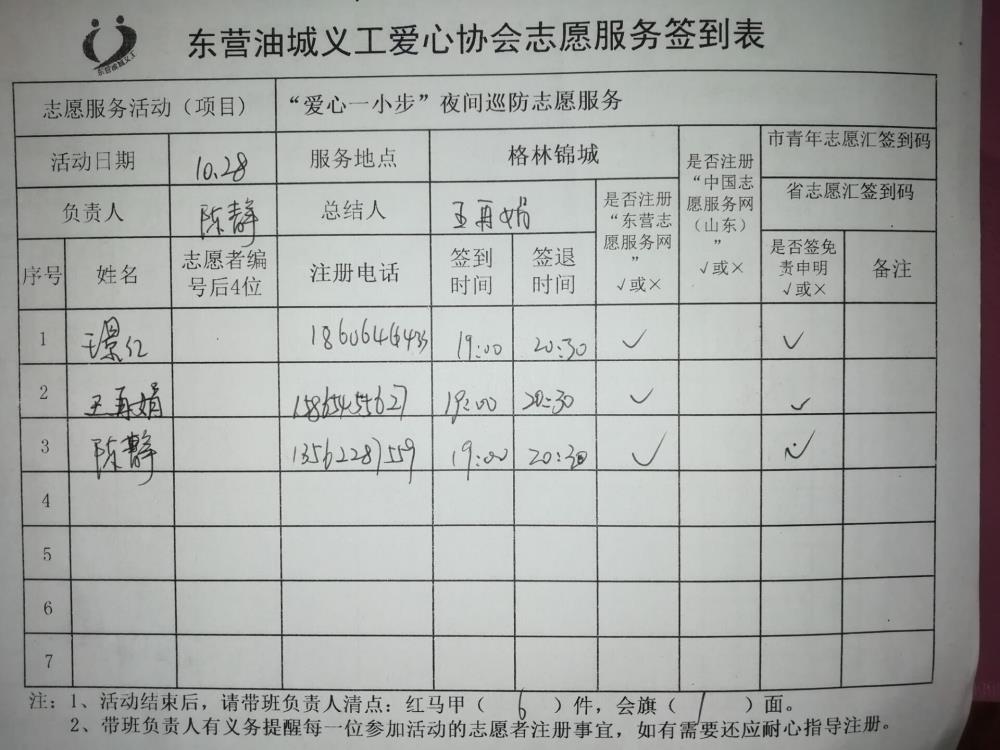 东营油城义工
东营油城义工爱心协会志愿服务签到表
志愿服务活动（项目） “爱心一小步”夜间巡防志愿服务
活动日期 10.28 服务地点 格林锦城 是否注册“中国志愿服务网（山东）” √或× 市青年志愿汇签到码
省志愿汇签到码
负责人 陈静 总结人 王再娟 是否注册“东营志愿服务网” √或×
序号 姓名 志愿者编号后4位 注册电话 签到时间 签退时间 是否签免责申明 √或× 备注
1 19:00 20:30 ✓ ✓
2 王再娟 15865455627 19:00 20:30 ✓ ✓
3 陈静 13562287559 19:00 20:30 ✓ ✓
4
5
6
7
注：1、活动结束后，请带班负责人清点：红马甲（ 6 ）件，会旗（ 1 ）面。
2、带班负责人有义务提醒每一位参加活动的志愿者注册事宜，如有需要还应耐心指导注册。